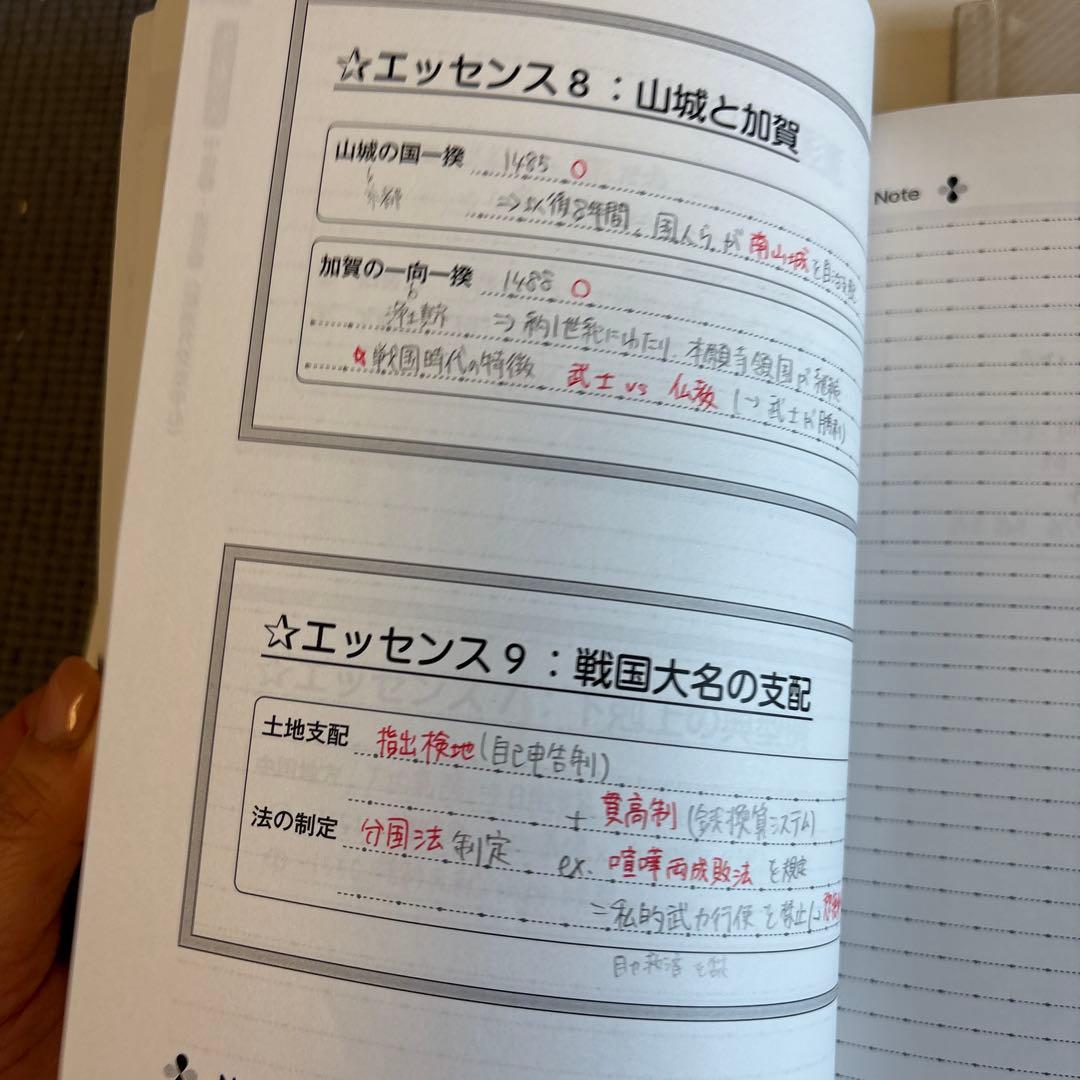 ☆エッセンス8：山城と加賀
山城の国一揆 1485 ○
京都 ⇒以後8年間、国人らが南山城を自治支配
加賀の一向一揆 1488 ○
浄土真宗 ⇒約1世紀にわたり、本願寺領国が継続
☆戦国時代の特徴 武士 vs 仏教 (→武士が勝利)
Note
☆エッセンス9：戦国大名の支配
土地支配 指出検地(自己申告制)
+ 貫高制(銭換算システム)
法の制定 分国法制定 ex. 喧嘩両成敗法を規定
=私的武力行使を禁止し